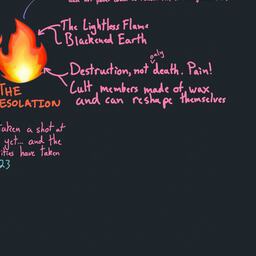 The Lightless Flame
Blackened Earth
only
Destruction, not death. Pain!
Cult members made of wax
and can reshape themselves
THE
ESOLATION
taken a shot at
yet... and the
ities have taken
23